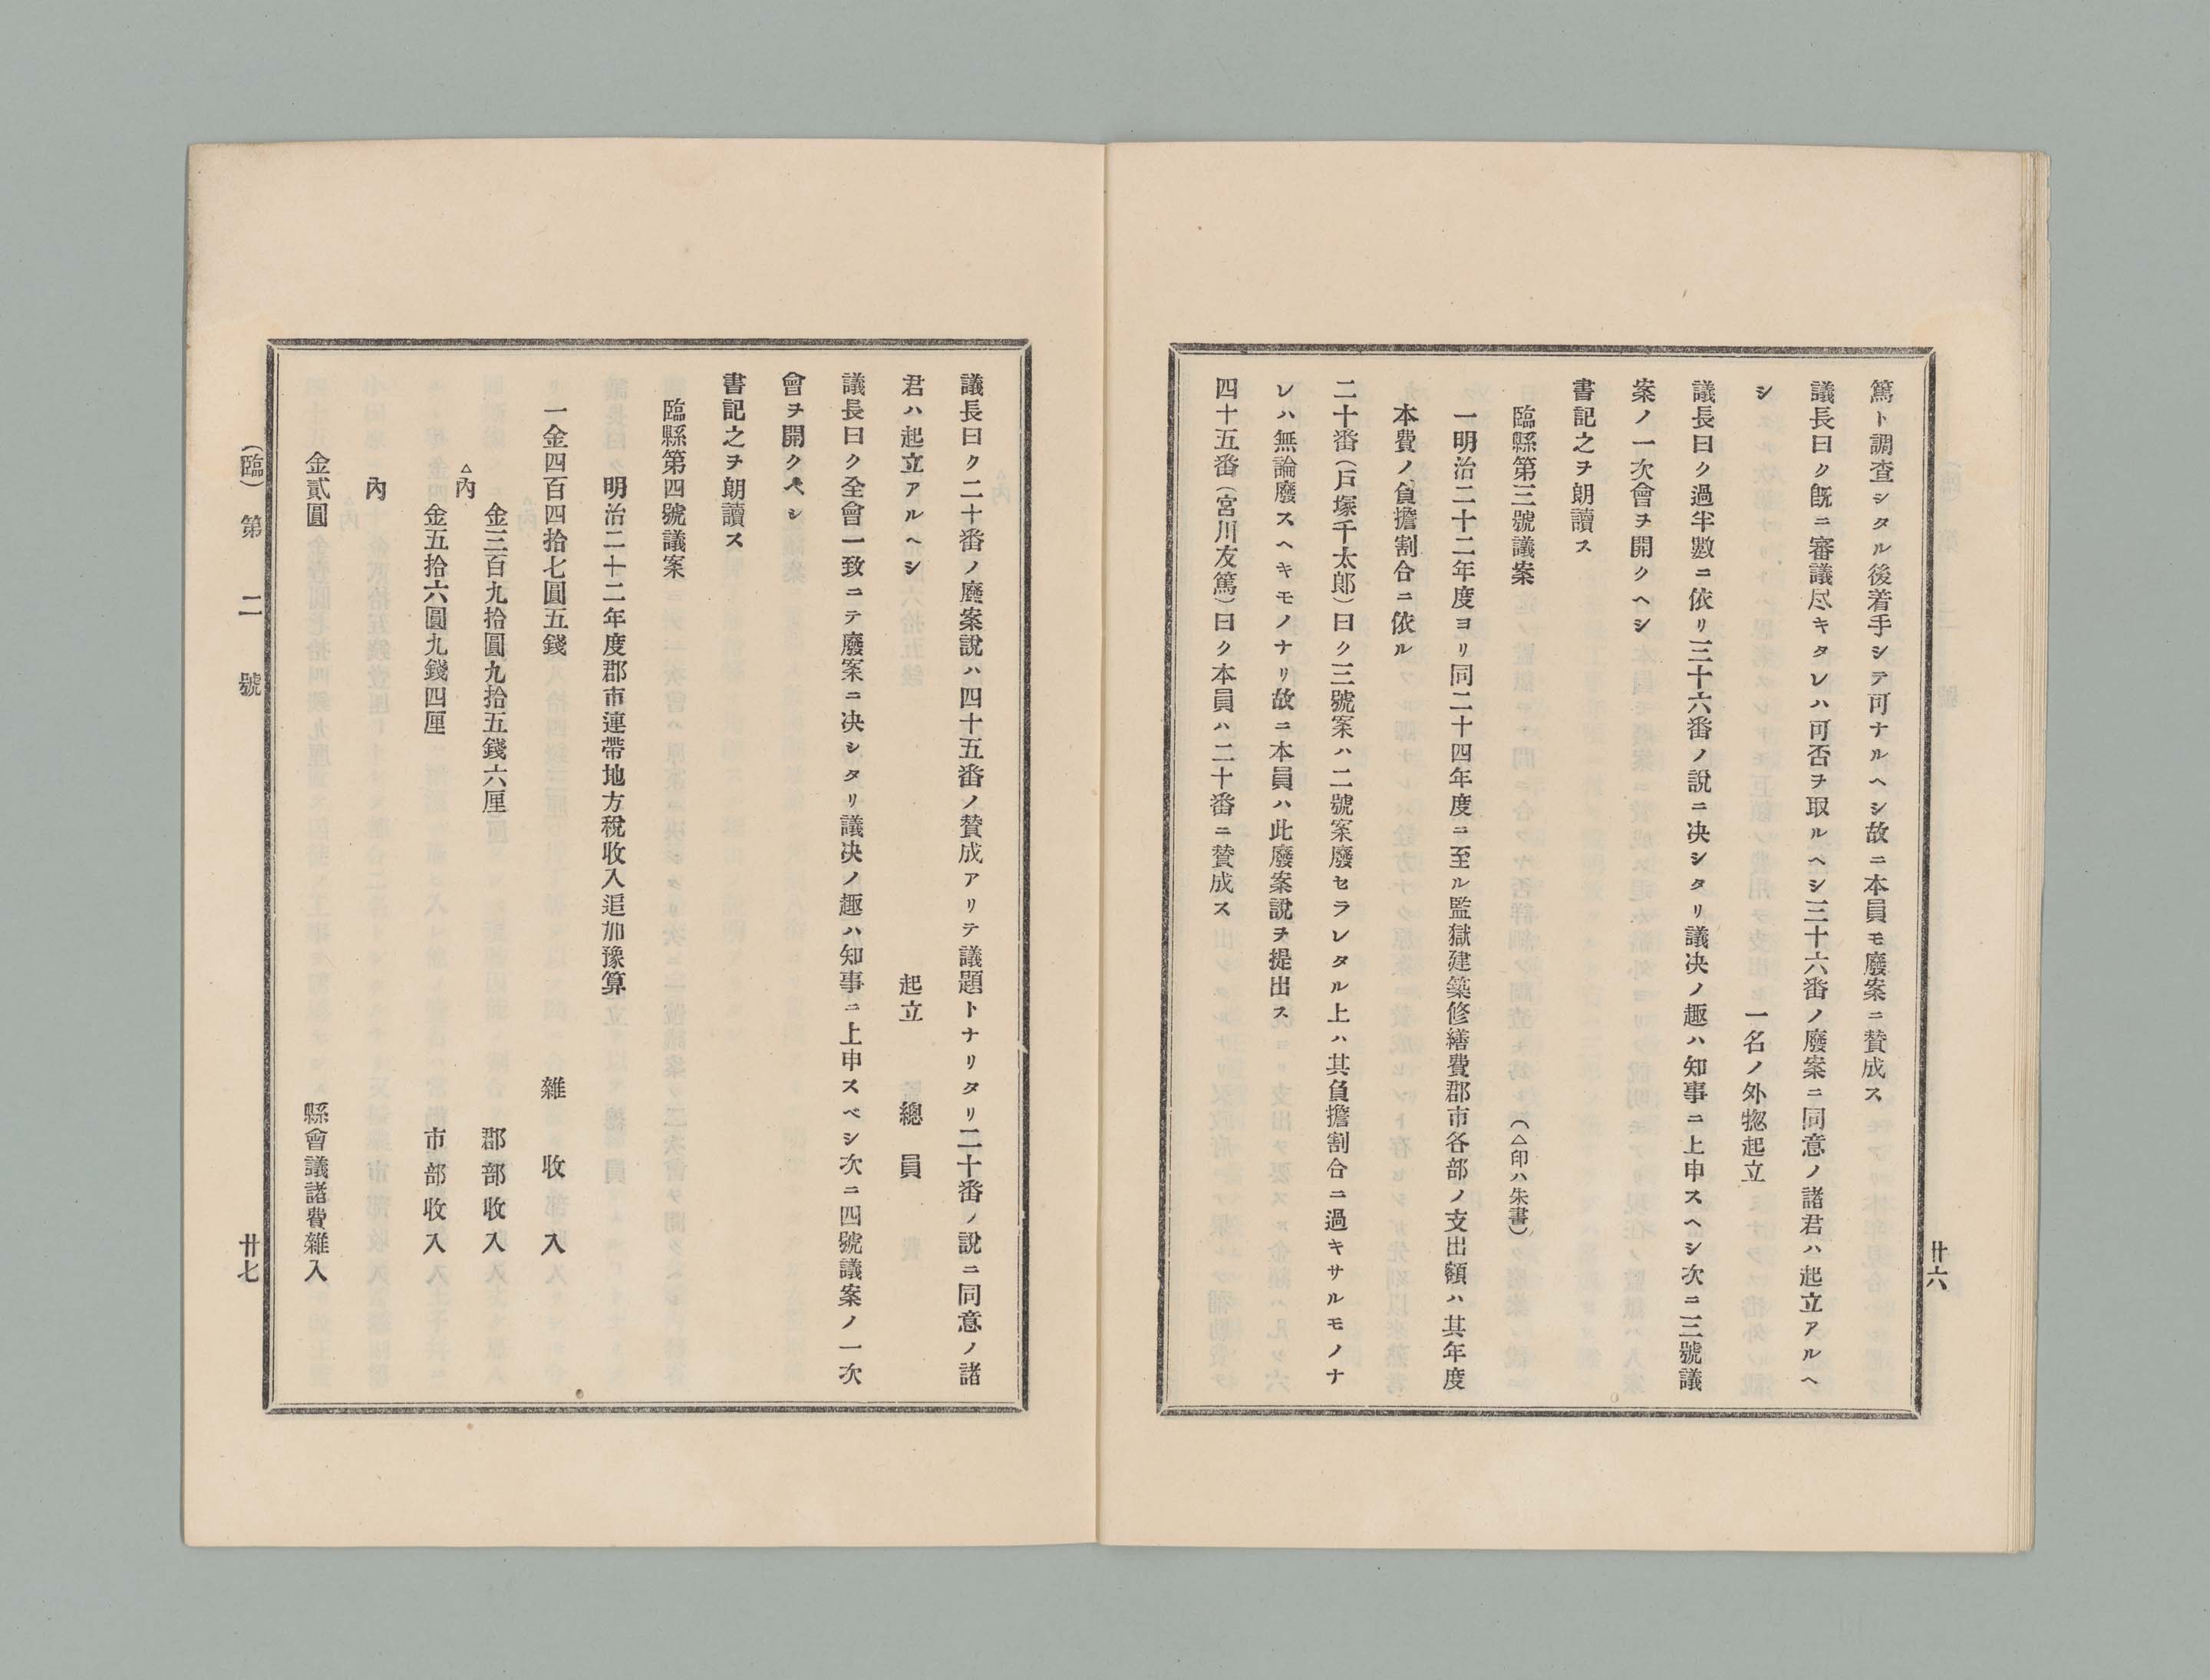 篤ト調査シタル後着手シテ可ナルヘシ故ニ本員モ廢案ニ賛成ス
議長曰ク既ニ審議尽キタレハ可否ヲ取ルヘシ三十六番ノ廢案ニ同意ノ諸君ハ起立アルヘ
シ　一名ノ外惣起立
議長曰ク過半數ニ依リ三十六番ノ說ニ决シタリ議决ノ趣ハ知事ニ上申スヘシ次ニ三號議
案ノ一次會ヲ開クヘシ
書記之ヲ朗讀ス
臨縣第三號議案　（△印ハ朱書）
一明治二十二年度ヨリ同二十四年度ニ至ル監獄建築修繕費郡市各部ノ支出額ハ其年度
本費ノ負擔割合ニ依ル
二十番（戸塚千太郎）曰ク三號案ハ二號案廢セラレタル上ハ其負擔割合ニ過キサルモノナ
レハ無論廢スヘキモノナリ故ニ本員ハ此廢案說ヲ提出ス
四十五番（宮川友篤）曰ク本員ハ二十番ニ賛成ス
廿六
議長曰ク二十番ノ廢案說ハ四十五番ノ賛成アリテ議題トナリタリ二十番ノ說ニ同意ノ諸
君ハ起立アルヘシ　起立　總員
議長曰ク全會一致ニテ廢案ニ决シタリ議决ノ趣ハ知事ニ上申スベシ次ニ四號議案ノ一次
會ヲ開クベシ
書記之ヲ朗讀ス
臨縣第四號議案
明治二十二年度郡市連帶地方稅收入追加豫算
一金四百四拾七圓五錢　雜收入
金三百九拾圓九拾五錢六厘　郡部收入
△內
金五拾六圓九錢四厘　市部收入
內
金貳圓　縣會議諸費雜入
（臨）第二號
廿七